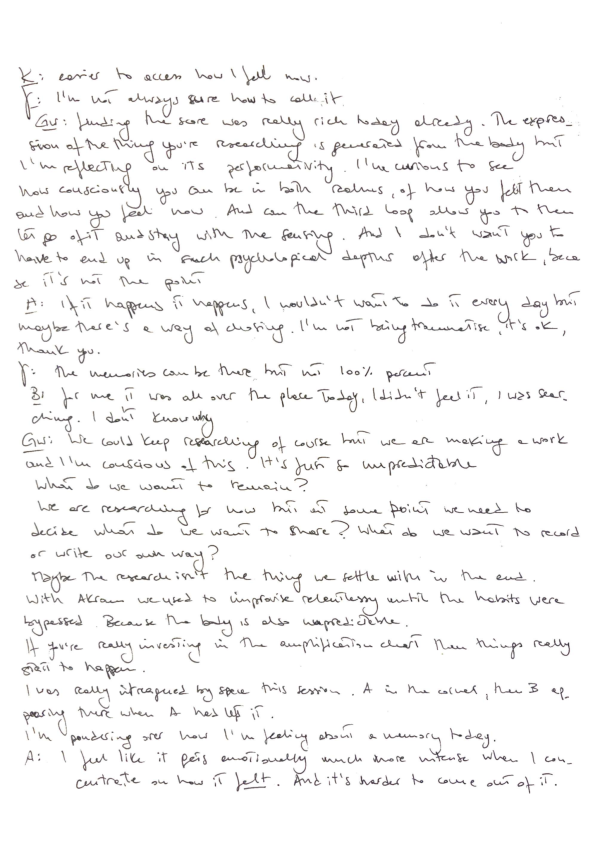 K: easier to access how I fell now.
F: I'm not always sure how to call it
Gw: finding the score was really rich today already. The expres-
sion of the thing you're researching is generated from the body but
I'm reflecting on its performativity. I'm curious to see
how consciously you can be in both realms, of how you felt then
and how you feel now. And can the third loop allow you to then
let go of it and stay with the sensing. And I don't want you to
have to end up in such psychological depths after the work, becau
se it's not the point
A: If it happens it happens, I wouldn't want to do it every day but
maybe there's a way of chosing. I'm not being traumatise, it's ok,
thank you.
F: The memories can be there but not 100% percent
B: for me it was all over the place today, I didn't feel it, I was sear-
ching. I don't know why
Gw: We could keep researching of course but we are making a work
and I'm conscious of this. It's just so unpredictable
What do we want to remain?
We are researching for now but at some point we need to
decide what do we want to share? What do we want to record
or write our own way?
Maybe the research isn't the thing we settle with in the end.
With Akram we used to improvise relentlessy until the habits were
bypessed. Because the body is also unpredictable.
If you're really investing in the amplification chart then things really
start to happen.
I was really intragued by space this session. A in the corner, then B ap-
pearing there when A had left it.
I'm pondering over how I'm feeling about a memory today.
A: I feel like it gets emotionally much more intense when I con-
centrate on how it felt. And it's harder to come out of it.